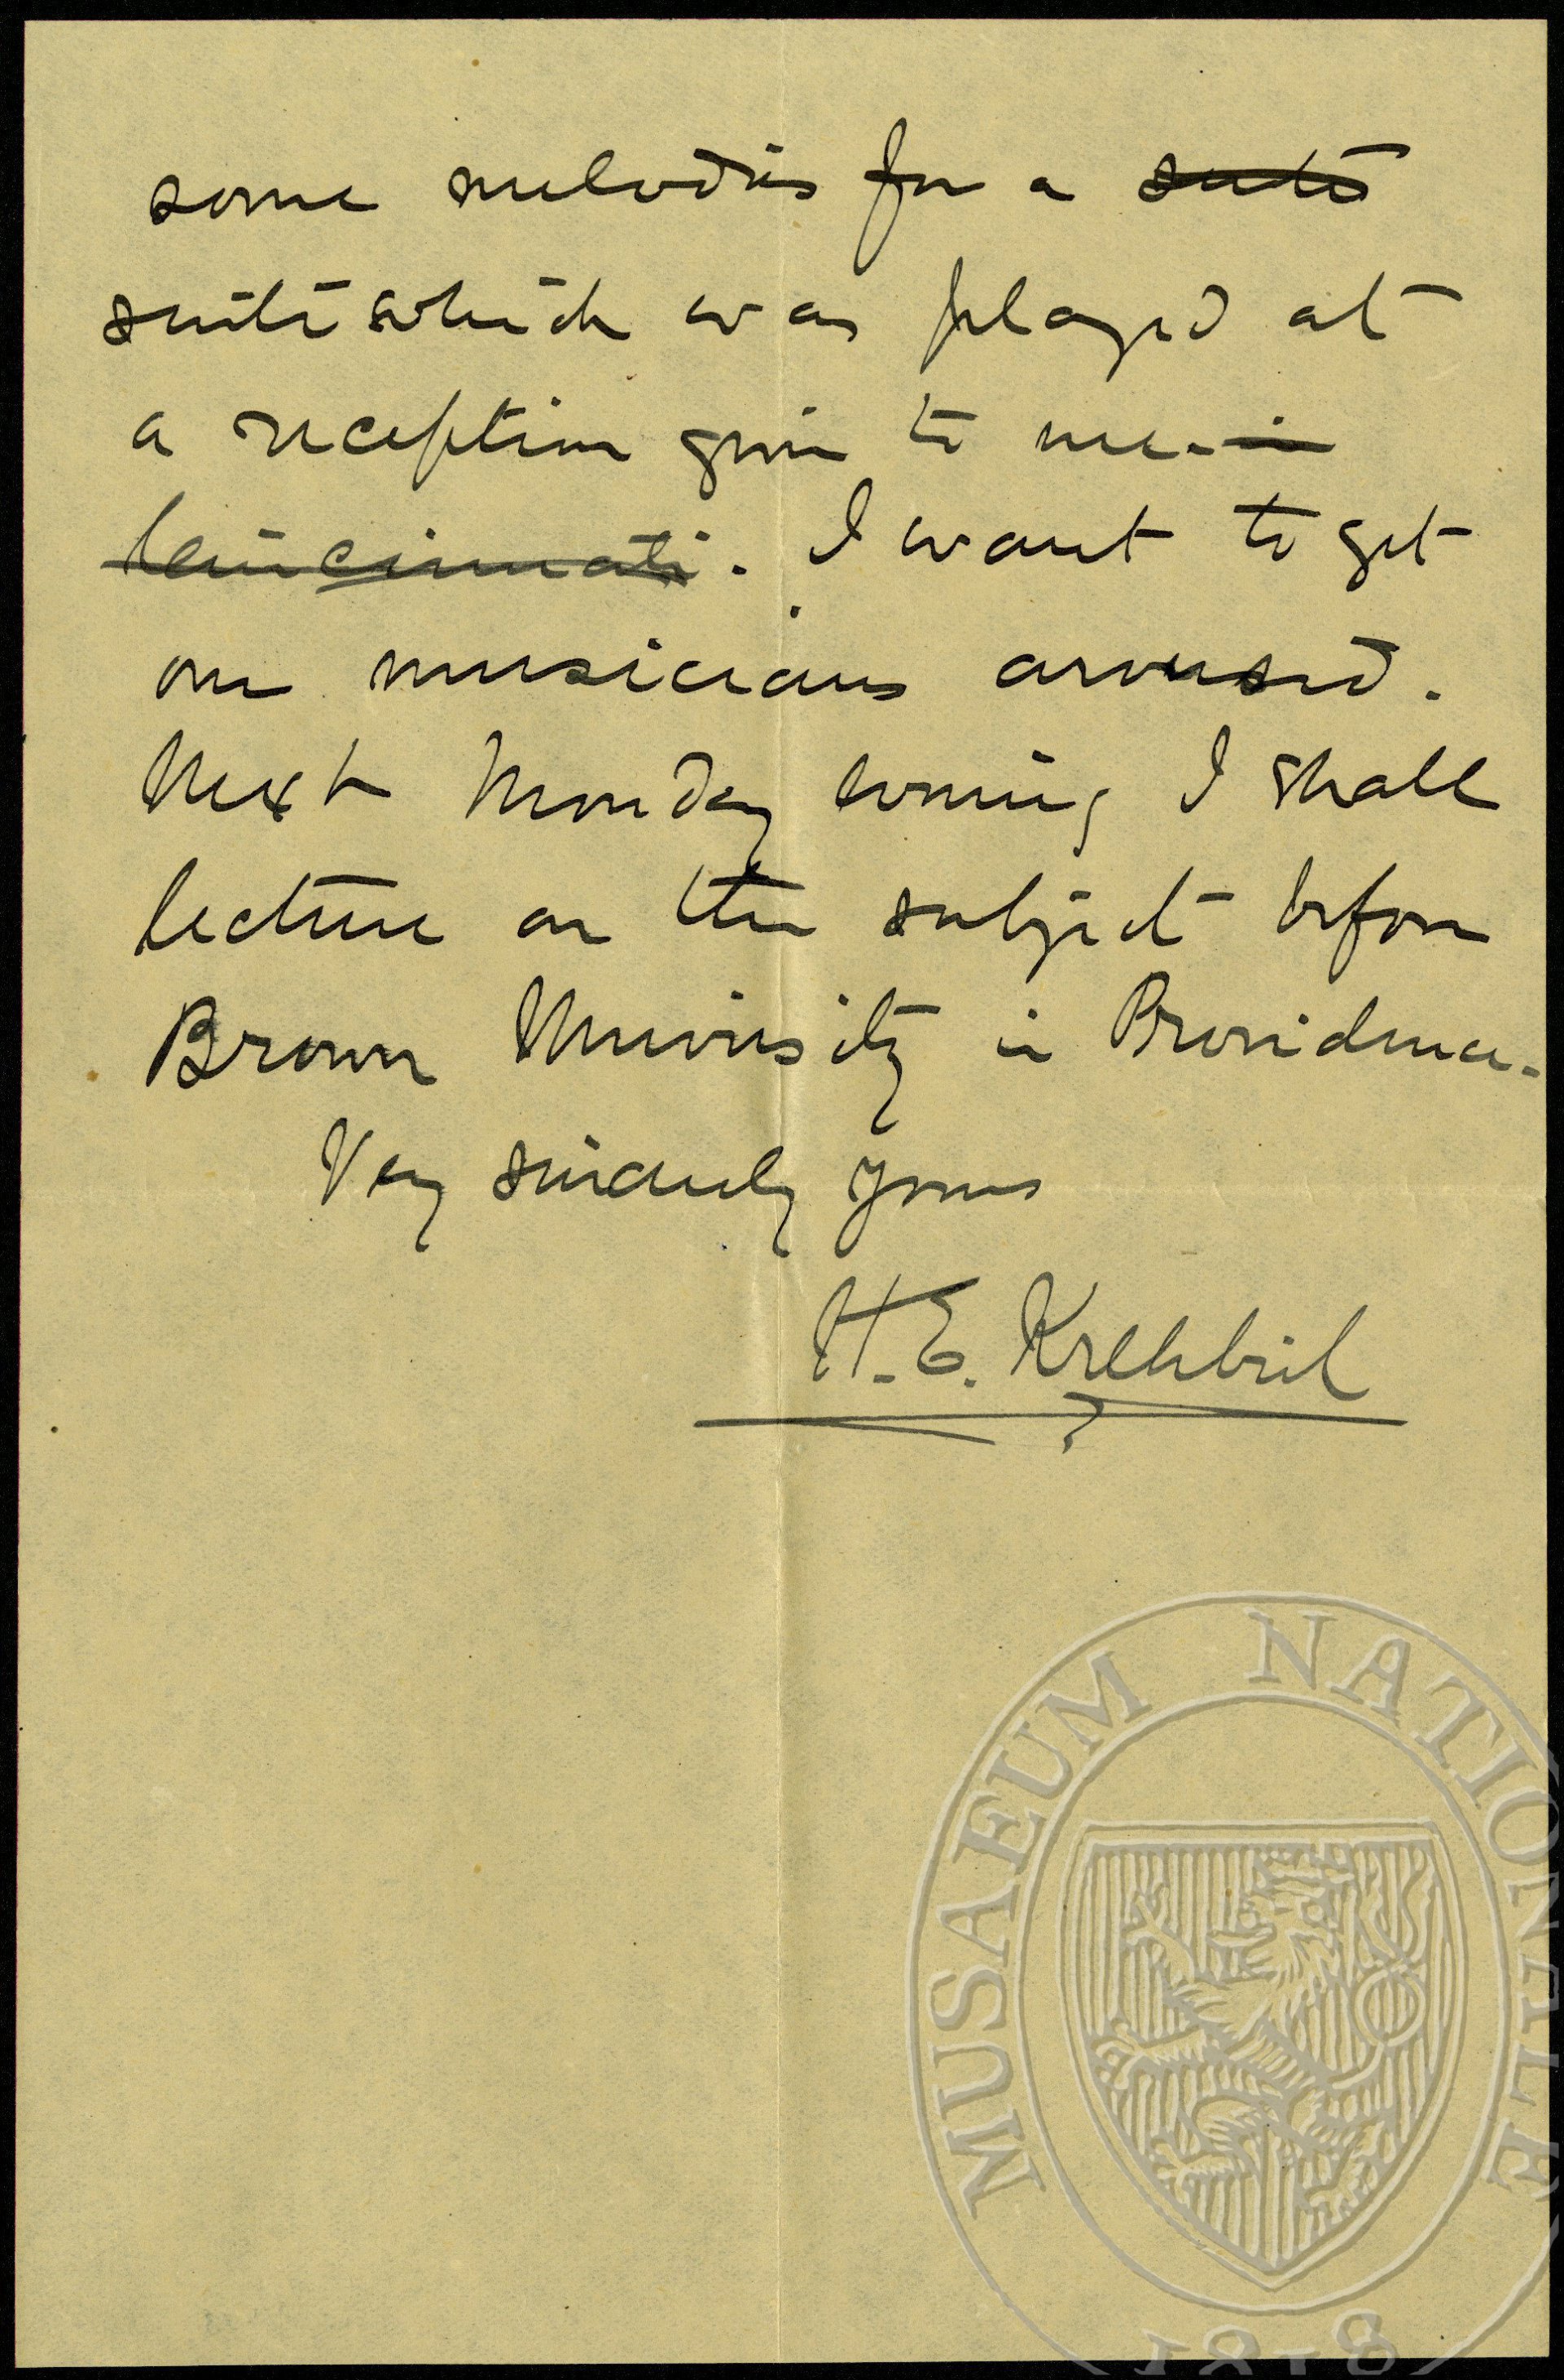 some melodies for a suite
suite which was played at
a reception given to me in
Cincinnati. I want to get
our musicians aroused.
Next Monday evening I shall
lecture on the subject before
Brown University in Providence.
Very sincerely yours
H. E. Krehbiel
MUSAEUM NATIONALE
1818